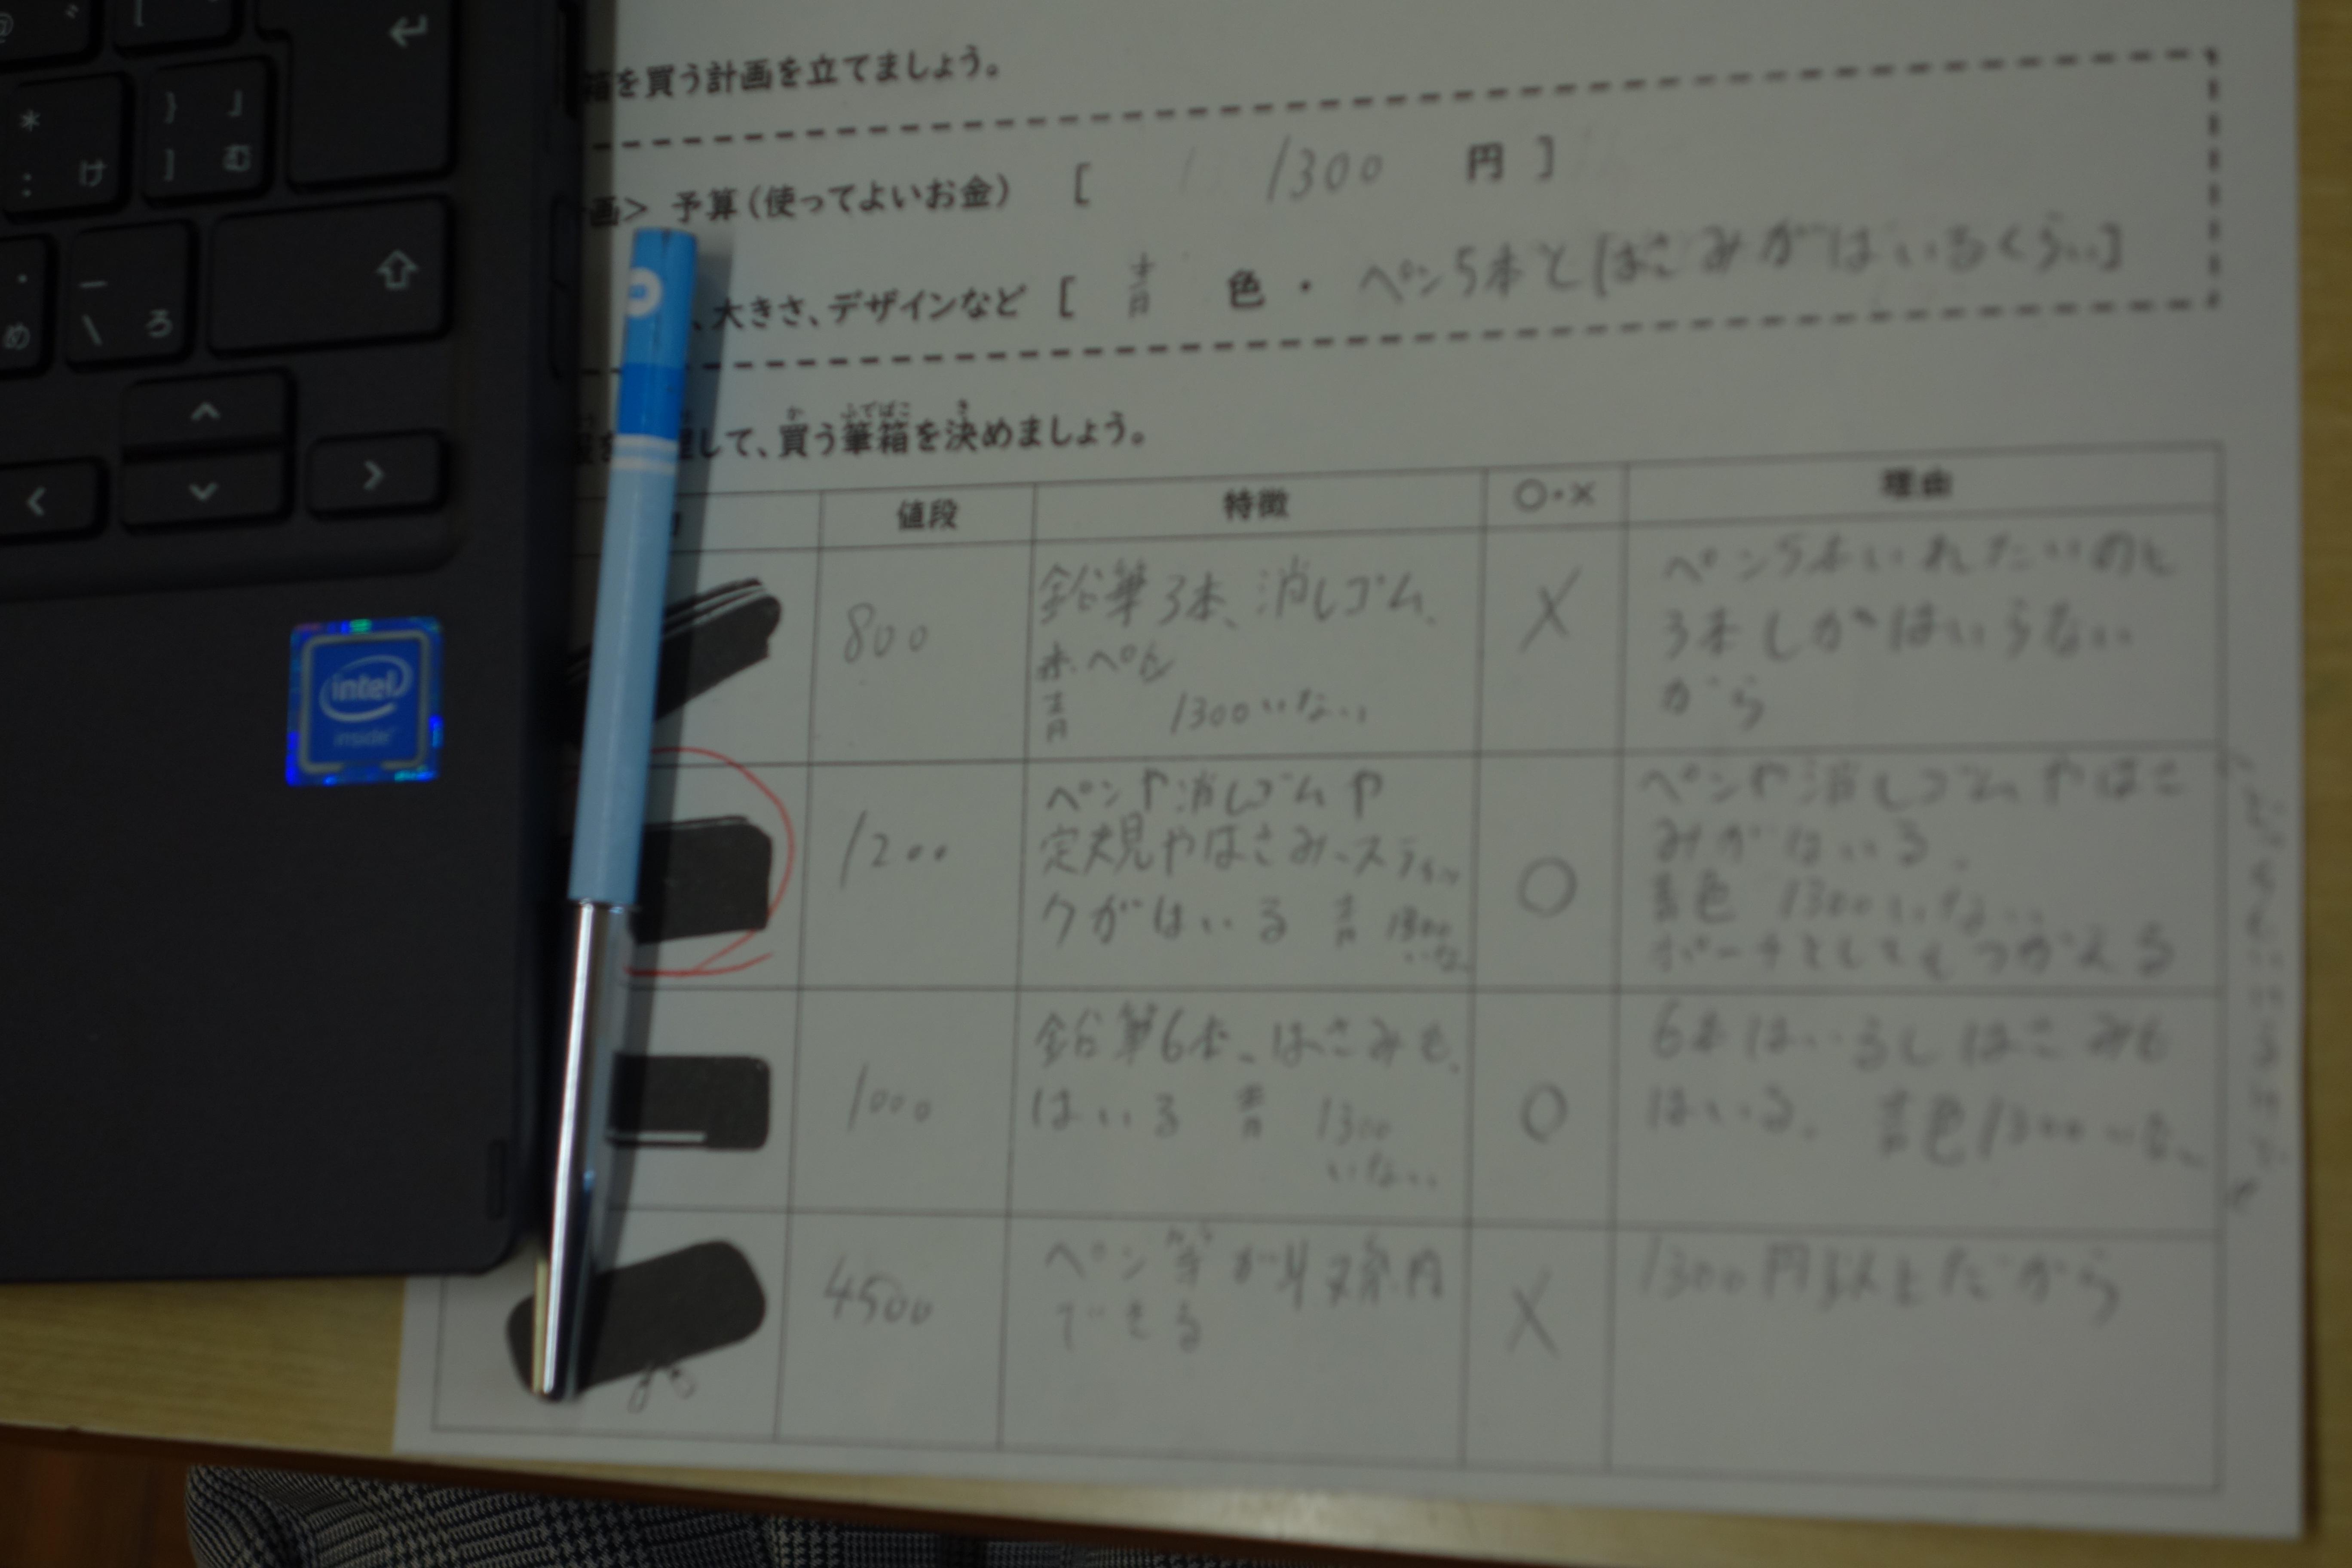 @ ゛ [ ↵
* : け } 」 ] む
・ め _ \ ろ ⇧
^
< v >
intel
inside
箱を買う計画を立てましょう。
画> 予算(使ってよいお金) [ 1300 円 ]
、大きさ、デザインなど [ 青 色・ ペン5本と[はさみがはいるくらい]
して、買う筆箱を決めましょう。
か ふでばこ き
値段 特徴 ○・× 理由
800
鉛筆3本、消しゴム、
赤ペン
青 1300いない
×
ペン5本いれたいのに
3本しかはいらない
から
1200
ペンや消しゴムや
定規やはさみ、スティッ
クがはいる 青 1300
いない
○
ペンや消しゴムやはさ
みがはいる、
青色 1300いない
ポーチとしてもつかえる
1000
鉛筆6本、はさみも、
はいる 青 1300
いない
○
6本はいるしはさみも
はいる。 青色1300いない
4500
ペン等が収納
できる
×
1300円以上だから